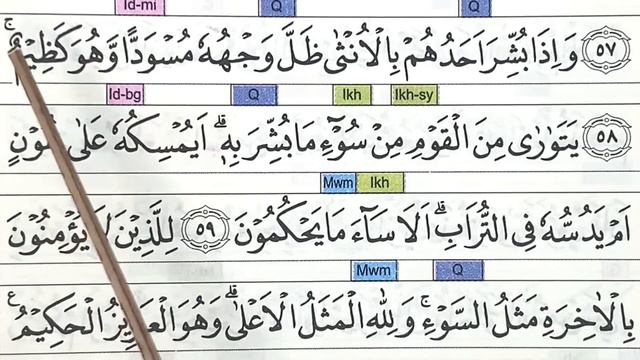 Id-mi Q Q
٥٧ وَاِذَا بُشِّرَ اَحَدُهُمْ بِالْاُنْثٰى ظَلَّ وَجْهُهٗ مُسْوَدًّا وَّهُوَ كَظِيْمٌۚ
Id-bg Q Ikh Ikh-sy
٥٨ يَتَوٰرٰى مِنَ الْقَوْمِ مِنْ سُوْۤءِ مَا بُشِّرَ بِهٖۗ اَيُمْسِكُهٗ عَلٰى هُوْنٍ
Mwm Ikh
اَمْ يَدُسُّهٗ فِى التُّرَابِۗ اَلَا سَاۤءَ مَا يَحْكُمُوْنَ ٥٩ لِلَّذِيْنَ لَا يُؤْمِنُوْنَ
Mwm Q
بِالْاٰخِرَةِ مَثَلُ السَّوْءِۚ وَلِلّٰهِ الْمَثَلُ الْاَعْلٰىۗ وَهُوَ الْعَزِيْزُ الْحَكِيْمُ ع